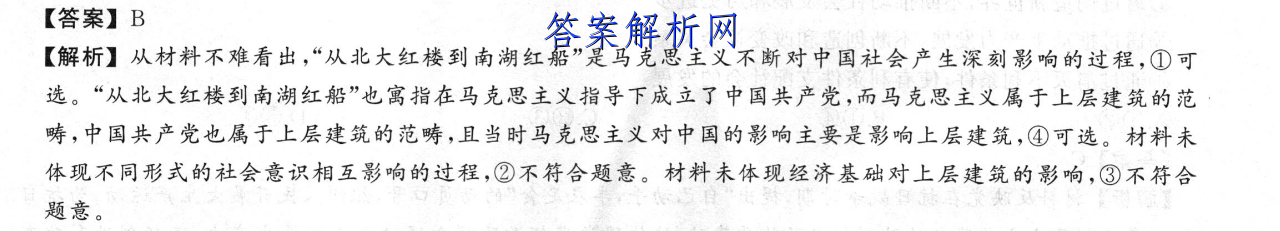 【答案】B
答案解析网
【解析】从材料不难看出,“从北大红楼到南湖红船”是马克思主义不断对中国社会产生深刻影响的过程,①可
选。“从北大红楼到南湖红船”也寓指在马克思主义指导下成立了中国共产党,而马克思主义属于上层建筑的范
畴,中国共产党也属于上层建筑的范畴,且当时马克思主义对中国的影响主要是影响上层建筑,④可选。材料未
体现不同形式的社会意识相互影响的过程,②不符合题意。材料未体现经济基础对上层建筑的影响,③不符合
题意。